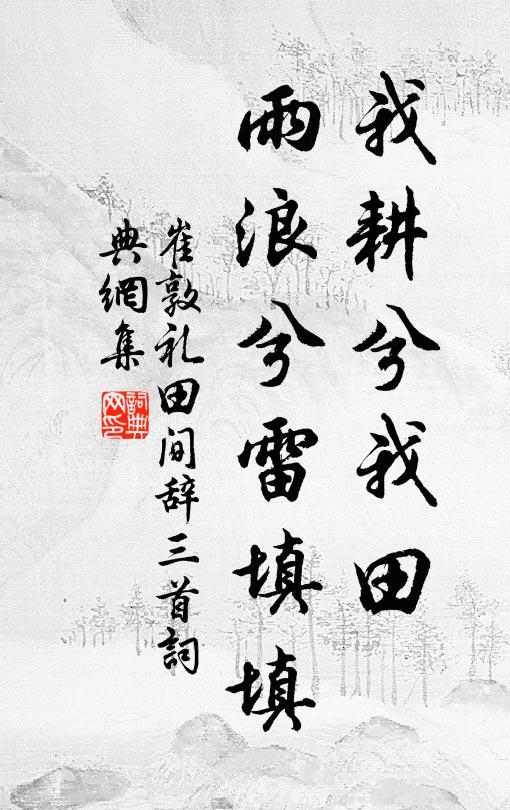 我耕兮我田
雨浪兮雷填填
崔敦礼田间辞三首詞
典網集
詞典
网印